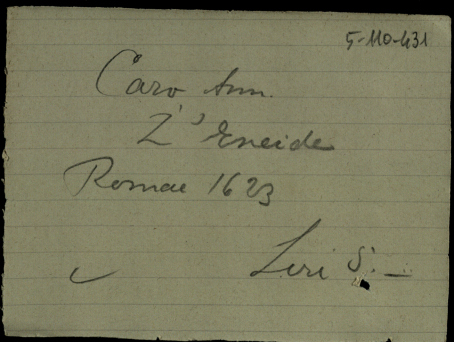 5-110-431
Caro Ann.
L'Eneide
Romae 1623
Lire 5. —